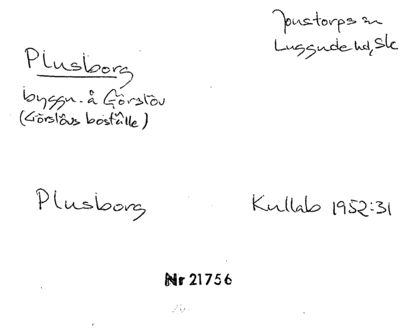 Jonstorps sn
Luggude hd, Sk
Plusborg
byggn. å Görslöv
(Görslövs boställe)
Plusborg
Kullab 1952:31
Nr 21756